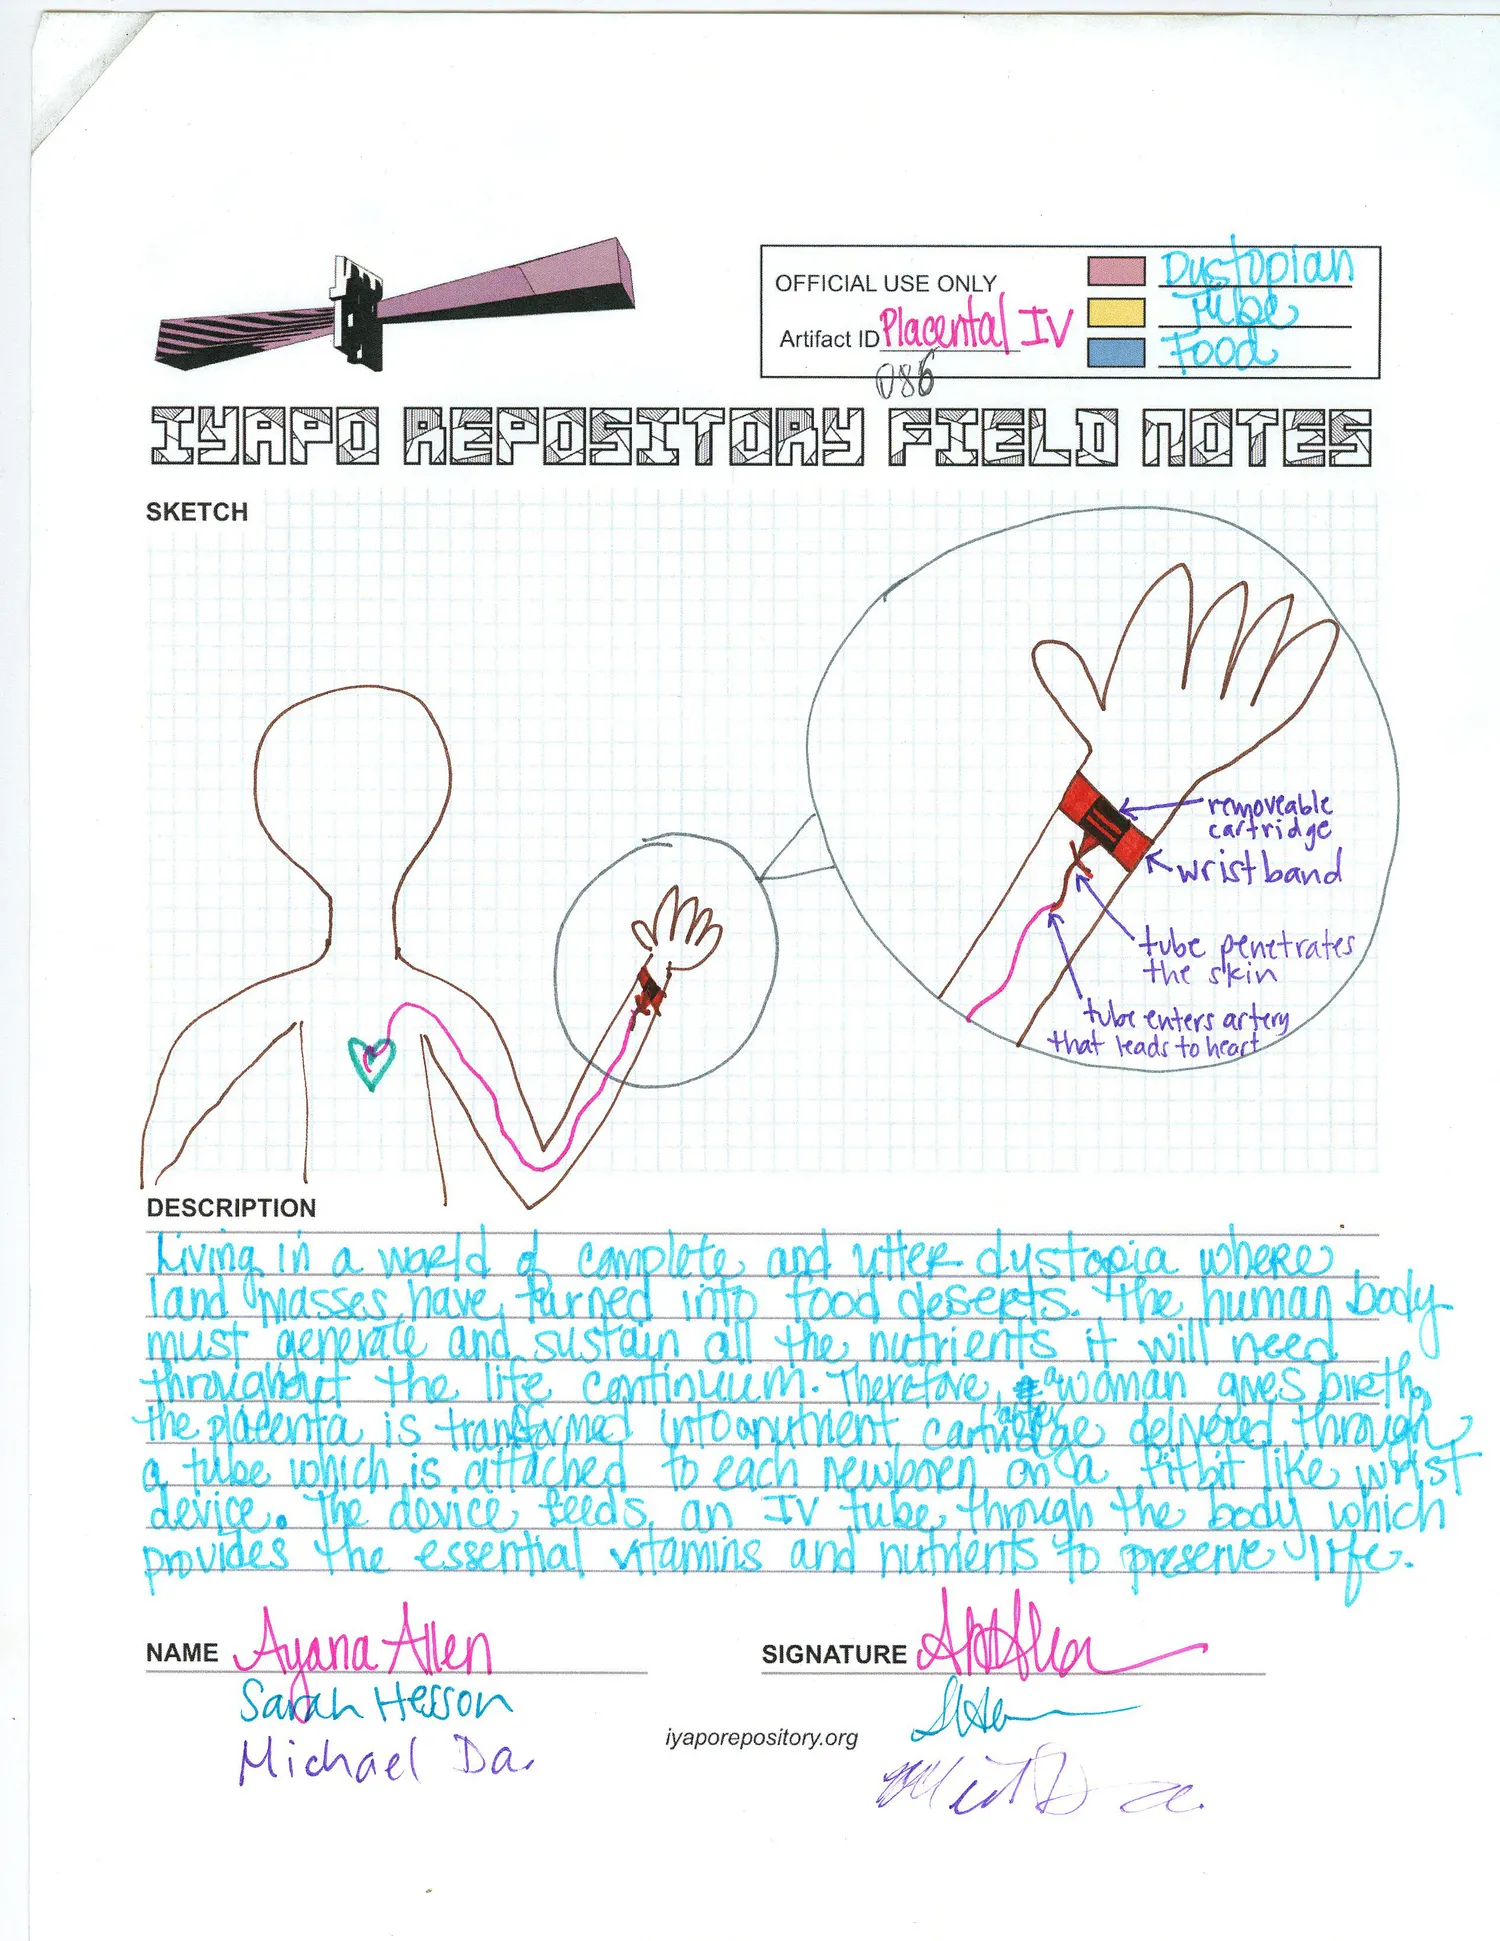 OFFICIAL USE ONLY
Artifact ID Placental IV
086
Dystopian
Tube
Food
IYAPO REPOSITORY FIELD NOTES
SKETCH
removeable
cartridge
wristband
tube penetrates
the skin
tube enters artery
that leads to heart
DESCRIPTION
Living in a world of complete and utter dystopia where
land masses have turned into food deserts. The human body
must generate and sustain all the nutrients it will need
throughout the life continuum. Therefore, a woman gives birth,
the placenta is transformed into a nutrient cartridge delivered through
a tube which is attached to each newborn on a fitbit like wrist
device. The device feeds an IV tube through the body which
provides the essential vitamins and nutrients to preserve life.
NAME Ayana Allen
Sarah Hesson
Michael Da.
SIGNATURE
iyaporepository.org